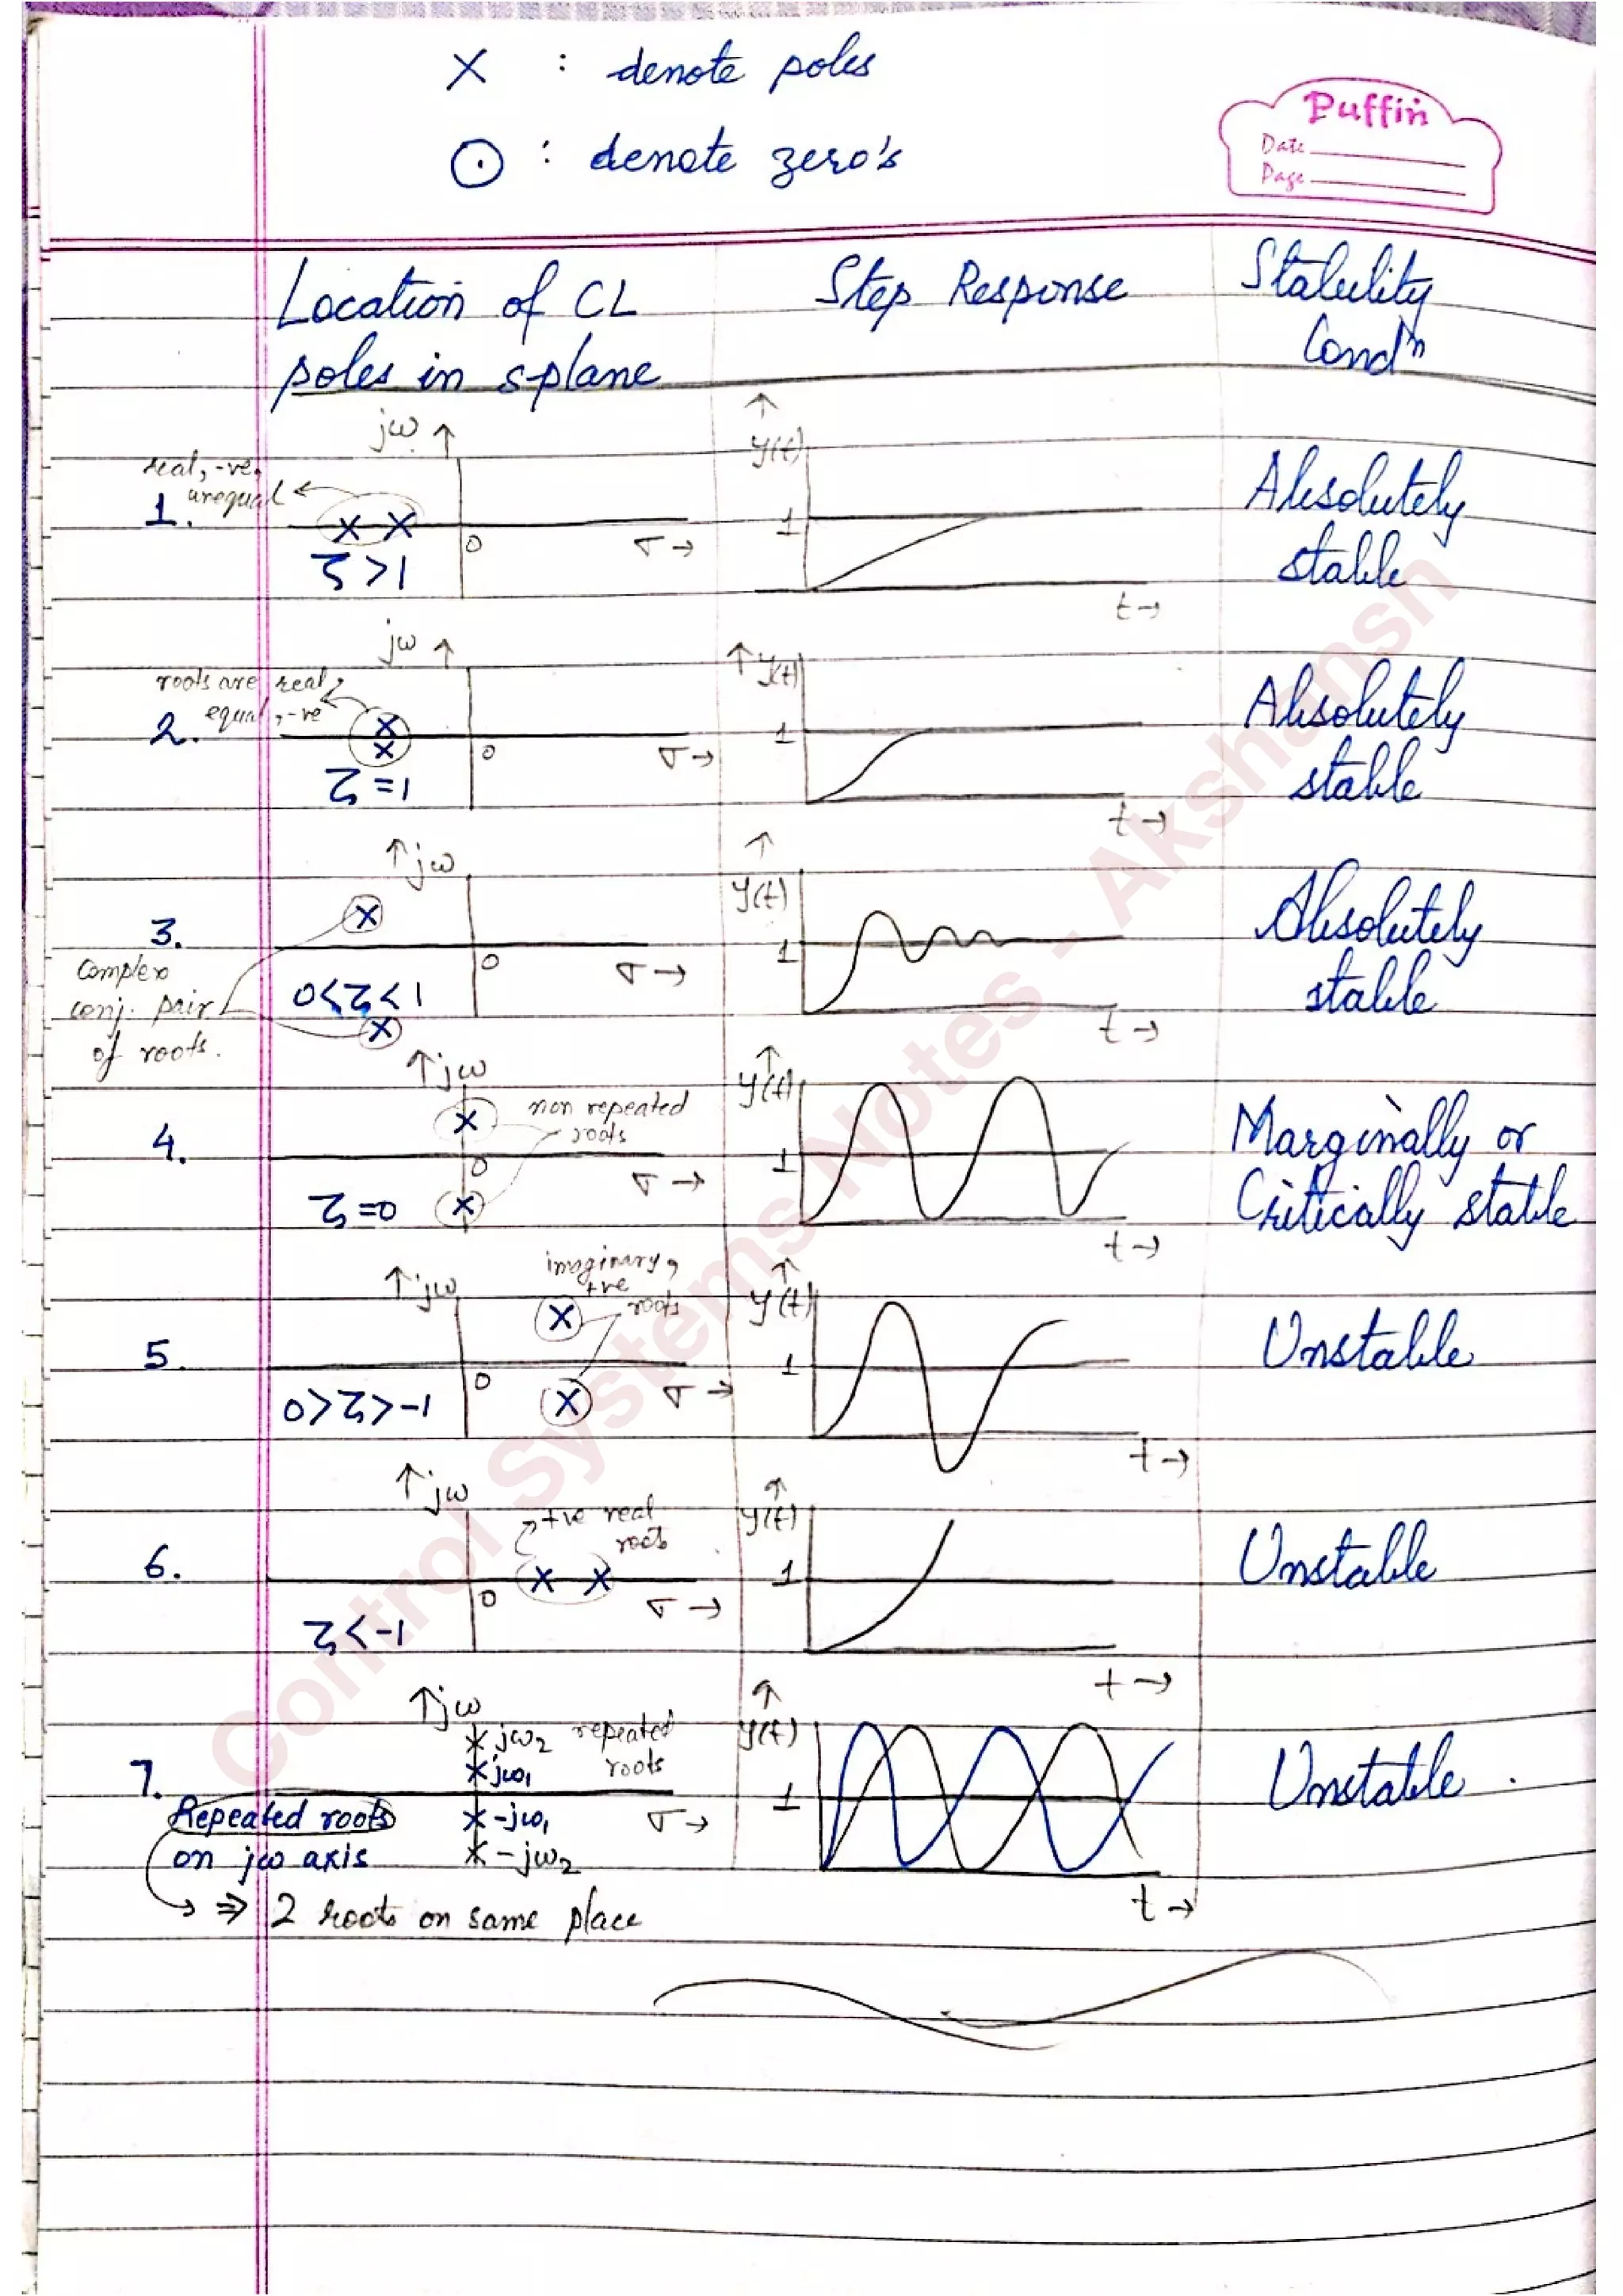 × : denote poles
⊙ : denote zero's
Puffin
Date
Page
Location of CL
poles in s-plane
Step Response
Stability
Condⁿ
jω ↑
real, -ve,
unequal
1.
0
σ →
ζ>1
↑
y(t)
1
t →
Absolutely
stable
jω ↑
roots are real,
equal, -ve
2.
0
σ →
ζ=1
↑ y(t)
1
t →
Absolutely
stable
↑jω
3.
Complex
conj. pair
of roots.
0
σ →
0<ζ<1
↑
y(t)
1
t →
Absolutely
stable
↑jω
non repeated
roots
4.
0
σ →
ζ=0
↑
y(t)
1
t →
Marginally or
Critically stable
↑jω
imaginary,
+ve
roots
5.
0
σ →
0>ζ>-1
↑
y(t)
1
t →
Unstable
↑jω
+ve real
roots
6.
0
σ →
ζ<-1
↑
y(t)
1
t →
Unstable
↑jω
jω₂ repeated
jω₁ roots
7.
Repeated roots
on jω axis
-jω₁
-jω₂
σ →
⇒ 2 roots on same place
↑
y(t)
1
t →
Unstable
Control Systems Notes - Akshansh